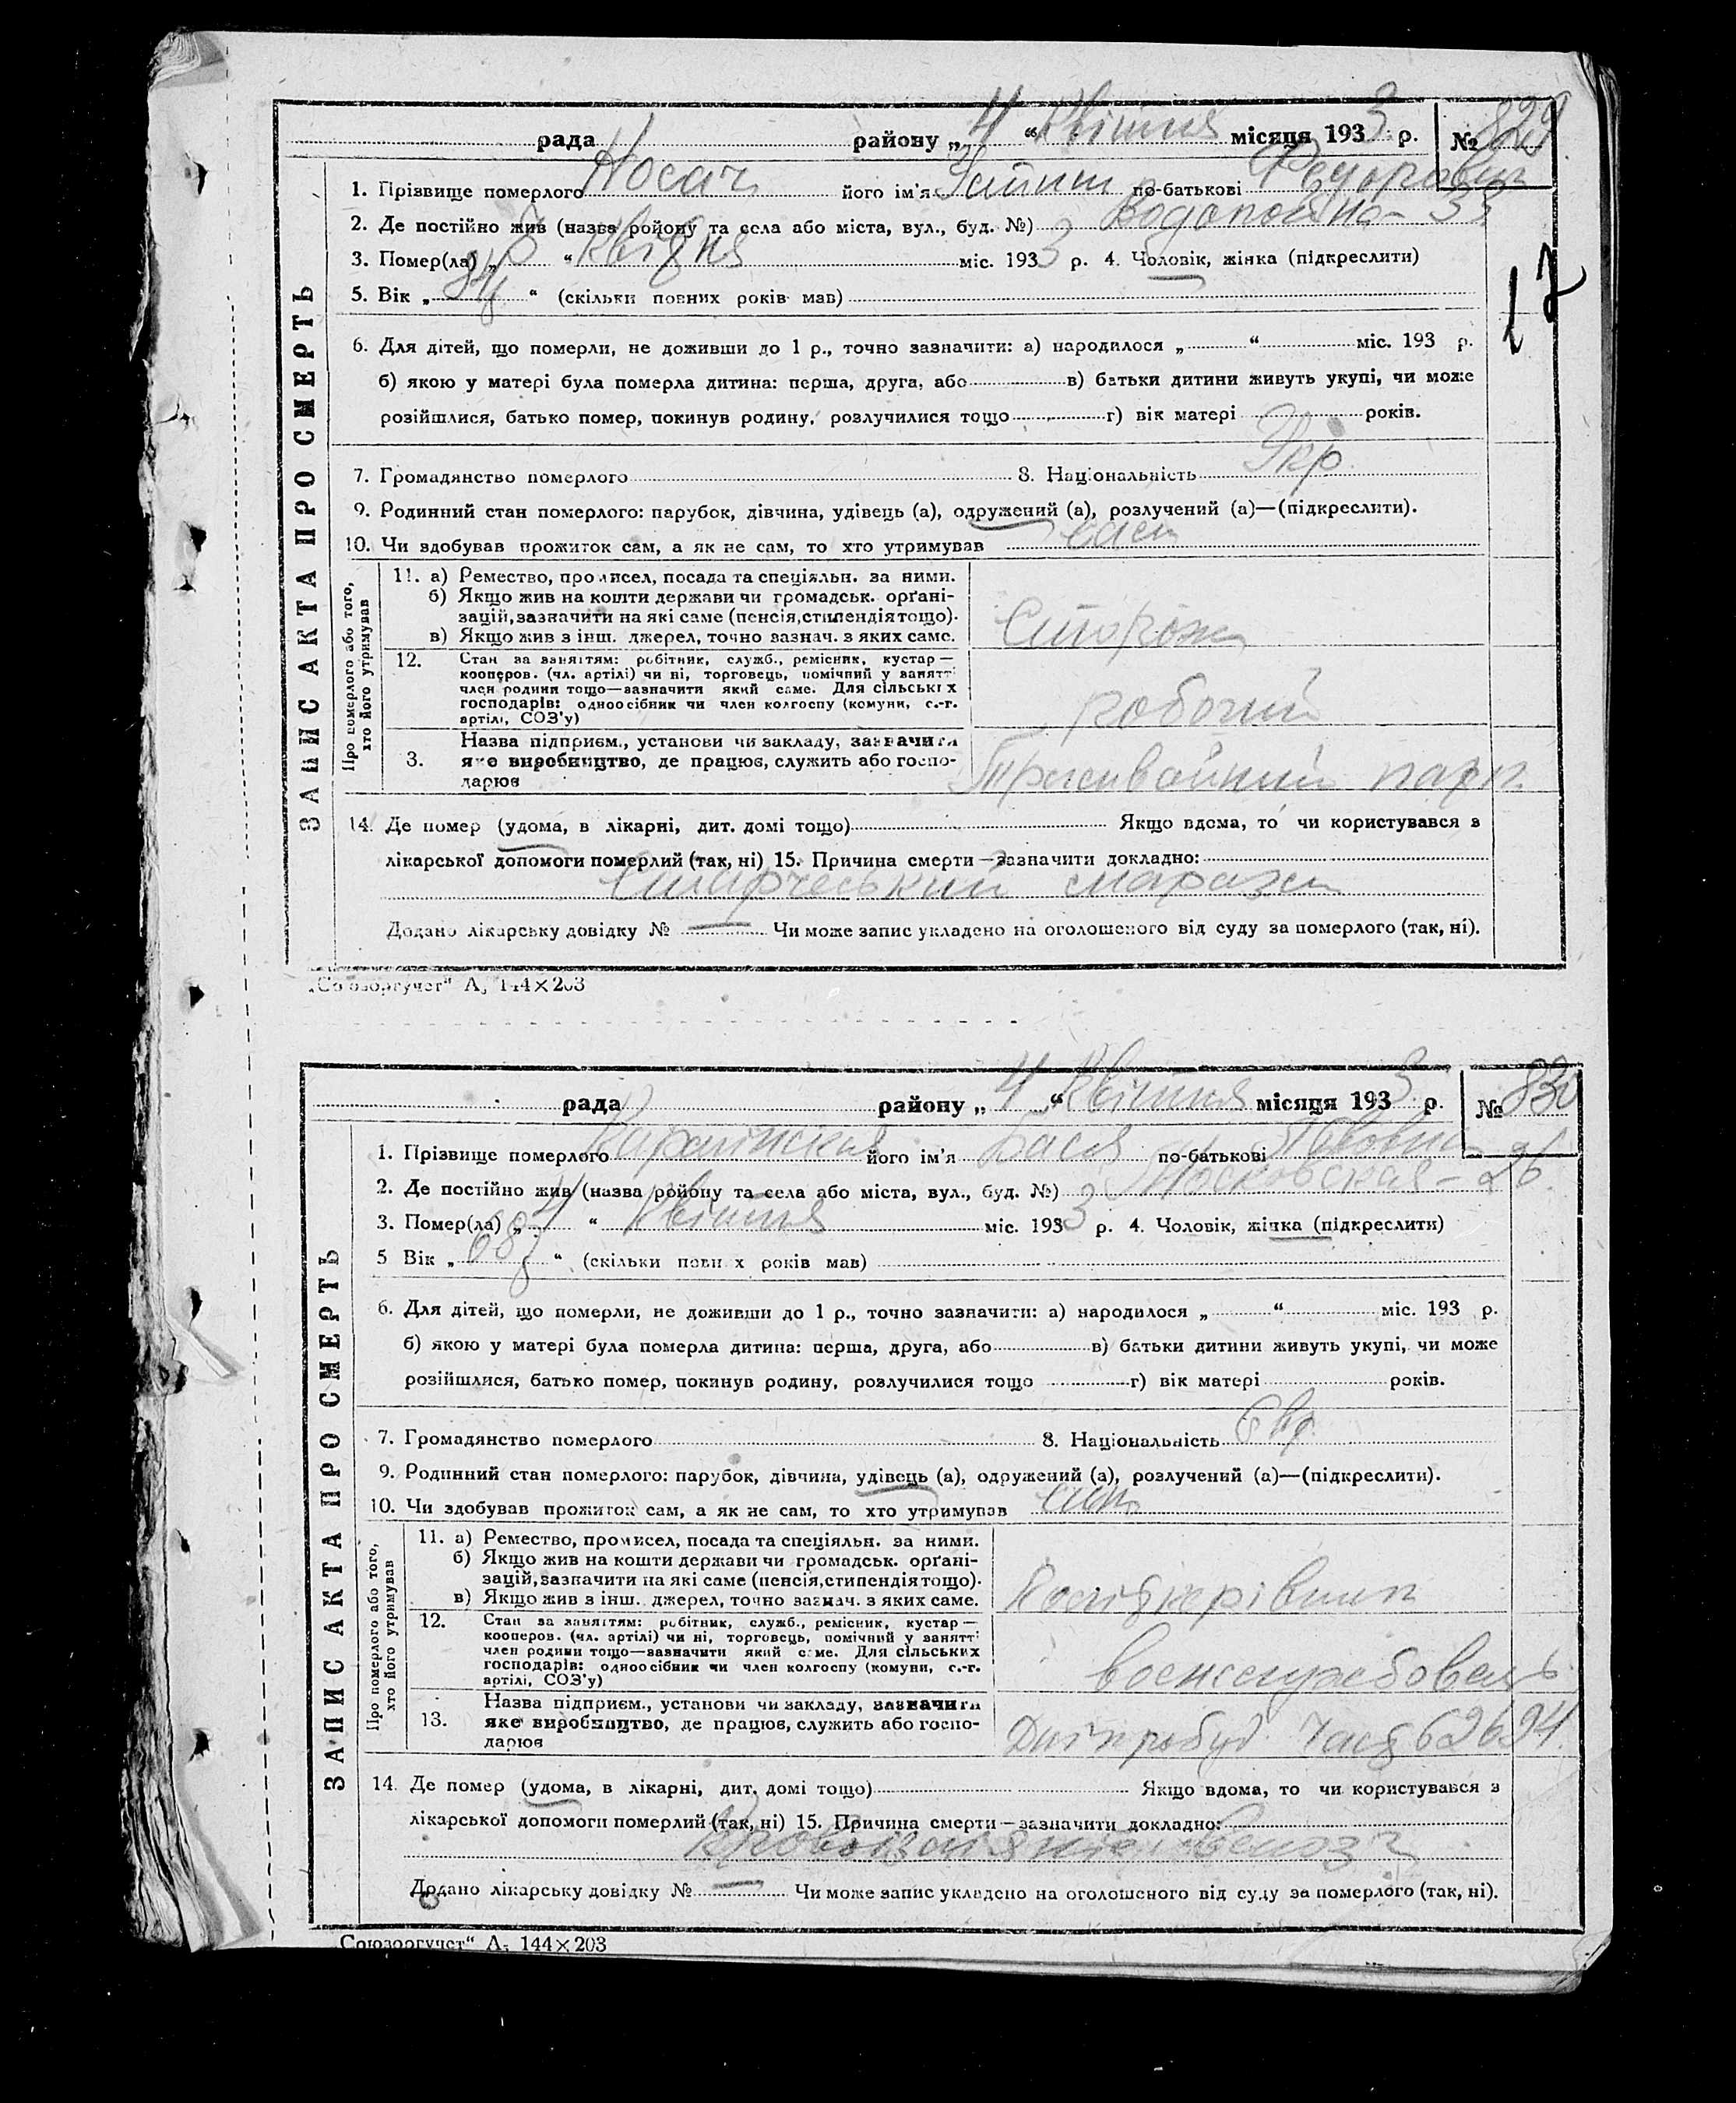 рада району „ 4 “ Квітня місяця 193 3 р. № 829
1. Прізвище померлого Носач його ім'я по-батькові Федорович
2. Де постійно жив (назва ройону та села або міста, вул., буд. №) Водопойна - 33
3. Помер(ла) „ “ міс. 193 3 р. 4. Чоловік, жінка (підкреслити)
5. Вік „ “ (скільки повних років мав)
17
6. Для дітей, що померли, не доживши до 1 р., точно зазначити: а) народилося „ “ міс. 193 р.
б) якою у матері була померла дитина: перша, друга, або в) батьки дитини живуть укупі, чи може
розійшлися, батько помер, покинув родину, розлучилися тощо г) вік матері років.
7. Громадянство померлого 8. Національність Укр.
9. Родинний стан померлого: парубок, дівчина, удівець (а), одружений (а), розлучений (а)—(підкреслити).
10. Чи здобував прожиток сам, а як не сам, то хто утримував сам
ЗАПИС АКТА ПРО СМЕРТЬ
Про померлого або того, хто його утримував
11. а) Ремество, промисел, посада та спеціяльн. за ними.
б) Якщо жив на кошти держави чи громадськ. орґані-
зацій, зазначити на які саме (пенсія, стипендія тощо).
в) Якщо жив з інш. джерел, точно зазнач. з яких саме.
Сторож
12. Стан за заняттям: робітник, служб., ремісник, кустар—
кооперов. (чл. артілі) чи ні, торговець, помічний у занятті
член родини тощо—зазначити який саме. Для сільських
господарів: одноосібник чи член колгоспу (комуни, с.-г.
артілі, СОЗ'у)
робочий
3. Назва підприєм., установи чи закладу, зазначити
яке виробництво, де працює, служить або госпо-
дарює
Трамвайний парк
14. Де помер (удома, в лікарні, дит. домі тощо) Якщо вдома, то чи користувався з
лікарської допомоги померлий (так, ні) 15. Причина смерти—зазначити докладно:
маразм
Додано лікарську довідку № — Чи може запис укладено на оголошеного від суду за померлого (так, ні).
„Союзоргучет“ А, 144×203
рада району „ 4 “ Квітня місяця 193 3 р. № 830
1. Прізвище померлого його ім'я Бася по-батькові
2. Де постійно жив (назва ройону та села або міста, вул., буд. №) Московская - 26.
3. Помер(ла) „ 4 “ Квітня міс. 193 3 р. 4. Чоловік, жінка (підкреслити)
5 Вік „ 68 “ (скільки повних років мав)
6. Для дітей, що померли, не доживши до 1 р., точно зазначити: а) народилося „ “ міс. 193 р.
б) якою у матері була померла дитина: перша, друга, або в) батьки дитини живуть укупі, чи може
розійшлися, батько помер, покинув родину, розлучилися тощо г) вік матері років.
7. Громадянство померлого 8. Національність Євр.
9. Родинний стан померлого: парубок, дівчина, удівець (а), одружений (а), розлучений (а)—(підкреслити).
10. Чи здобував прожиток сам, а як не сам, то хто утримував син
ЗАПИС АКТА ПРО СМЕРТЬ
Про померлого або того, хто його утримував
11. а) Ремество, промисел, посада та спеціяльн. за ними.
б) Якщо жив на кошти держави чи громадськ. орґані-
зацій, зазначити на які саме (пенсія, стипендія тощо).
в) Якщо жив з інш. джерел, точно зазнач. з яких саме.
Политкерівник
12. Стан за заняттям: робітник, служб., ремісник, кустар—
кооперов. (чл. артілі) чи ні, торговець, помічний у занятті
член родини тощо—зазначити який саме. Для сільських
господарів: одноосібник чи член колгоспу (комуни, с.-г.
артілі, СОЗ'у)
13. Назва підприєм., установи чи закладу, зазначити
яке виробництво, де працює, служить або госпо-
дарює
Дніпробуд
14. Де помер (удома, в лікарні, дит. домі тощо) Якщо вдома, то чи користувався з
лікарської допомоги померлий (так, ні) 15. Причина смерти—зазначити докладно:
Додано лікарську довідку № — Чи може запис укладено на оголошеного від суду за померлого (так, ні).
„Союзоргучет“ А, 144×203